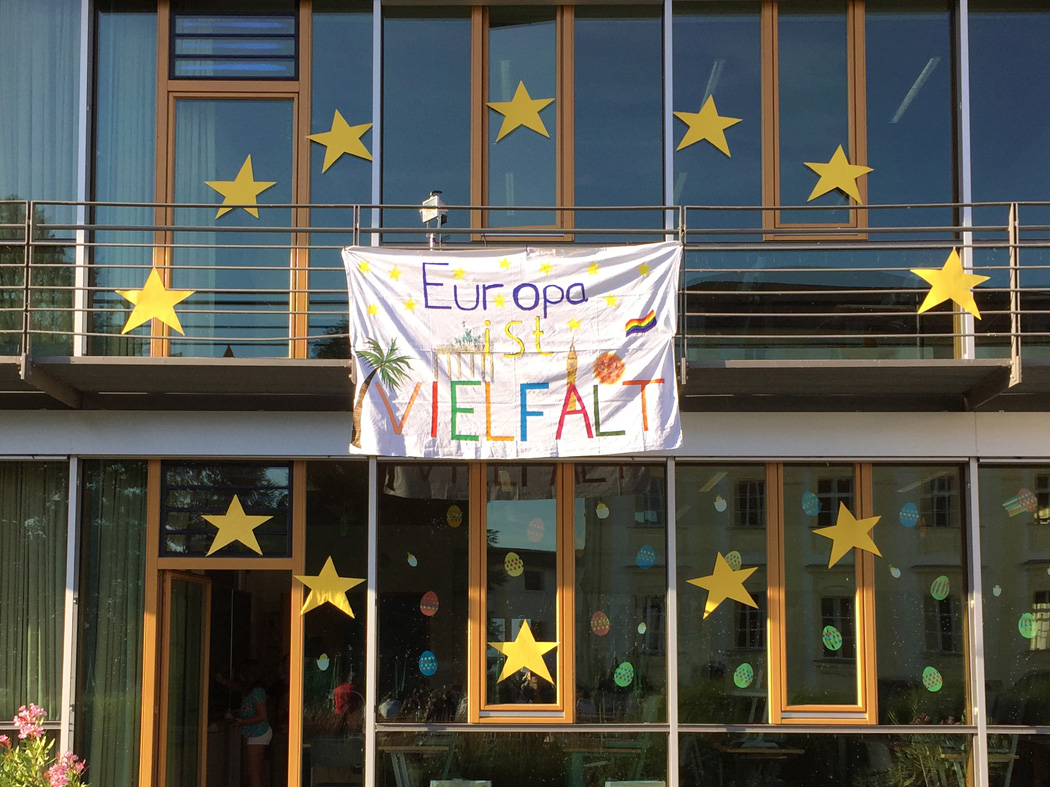 Europa
ist
VIELFALT